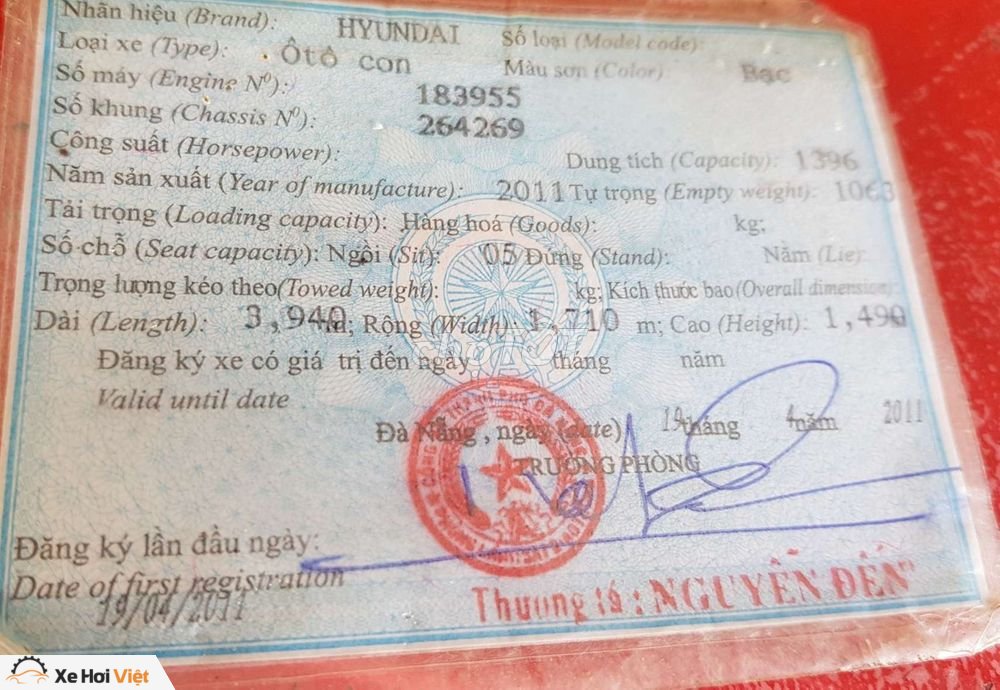 Nhãn hiệu (Brand): HYUNDAI Số loại (Model code):
Loại xe (Type): Ôtô con Màu sơn (Color): Bạc
Số máy (Engine Nº): 183955
Số khung (Chassis Nº): 264269
Công suất (Horsepower): Dung tích (Capacity): 1396
Năm sản xuất (Year of manufacture): 2011 Tự trọng (Empty weight): 1063
Tải trọng (Loading capacity): Hàng hoá (Goods): kg;
Số chỗ (Seat capacity): Ngồi (Sit): 05 Đứng (Stand): Nằm (Lie):
Trọng lượng kéo theo(Towed weight): kg; Kích thước bao(Overall dimension):
Dài (Length): 3,940 m; Rộng (Width): 1,710 m; Cao (Height): 1,490
Đăng ký xe có giá trị đến ngày tháng năm
Valid until date
Đà Nẵng , ngày (date) 19 tháng 4 năm 2011
TRƯỞNG PHÒNG
Đăng ký lần đầu ngày:
Date of first registration
19/04/2011
Thượng tá : NGUYỄN ĐẾN
Xe Hơi Việt